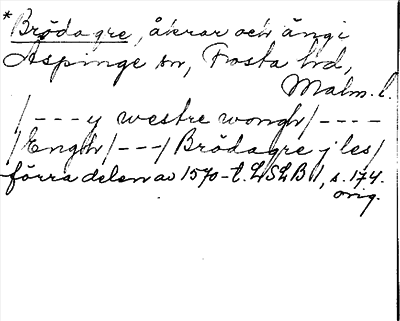 *Brödagre, åkrar och äng i
Aspinge sn, Frosta hd,
Malm. l.
/---y westre wongh/----
/Engh/---/Brödagre j les/
förra delen av 1570-t. LSLB 1, s. 174.
orig.